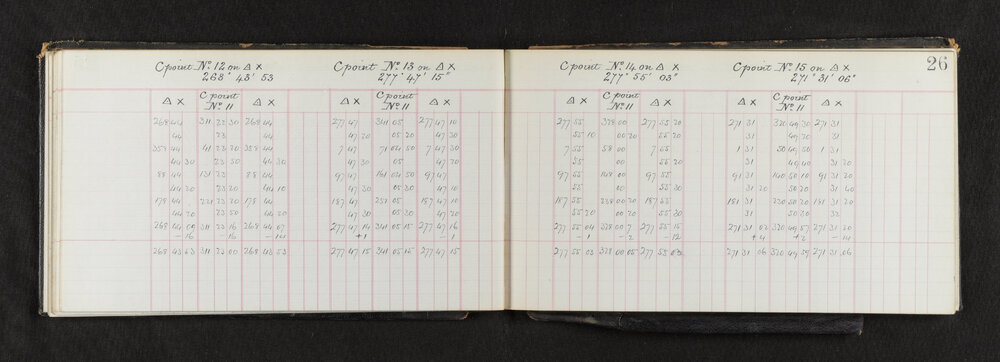 26
C point Nº 12 on Δ X
268° 43' 53
Δ X C point Nº 11 Δ X
268 44 311 22 30 268 44
44 23 44
358 44 41 23 20 358 44
44 30 23 50 44 30
88 44 131 22 88 44
44 20 23 20 44 10
178 44 221 22 20 178 44
44 20 23 50 44 20
268 44 09 311 22 16 268 44 07
-16 -16 -14
268 43 53 311 22 00 268 43 53
C point Nº 13 on Δ X
277° 47' 15"
Δ X C point Nº 11 Δ X
277 47 341 05 277 47 10
47 20 05 20 47 30
7 47 71 04 50 7 47 30
47 30 05 47 20
97 47 161 04 50 97 47
47 20 05 30 47 10
187 47 251 05 187 47 10
47 30 05 30 47 20
277 47 14 341 05 15 277 47 16
+1 -1
277 47 15 341 05 15 277 47 15
C point Nº 14 on Δ X
277° 55' 03"
Δ X C point Nº 11 Δ X
277 55 328 00 277 55 20
55 10 00 20 55 20
7 55 58 00 7 55
55 00 55 20
97 55 148 00 97 55
55 00 55 30
187 55 238 00 20 187 55
55 20 00 20 55 30
277 55 04 328 00 7 277 55 15
-1 -2 -12
277 55 03 328 00 05 277 55 03
C point Nº 15 on Δ X
271° 31' 06"
Δ X C point Nº 11 Δ X
271 31 320 49 30 271 31
31 49 70 31
1 31 50 49 50 1 31
31 49 40 31 20
91 31 140 50 10 91 31
31 20 50 20 31 40
181 31 230 50 20 181 31 20
31 50 32
271 31 02 320 49 57 271 31 20
+4 +2 -14
271 31 06 320 49 59 271 31 06